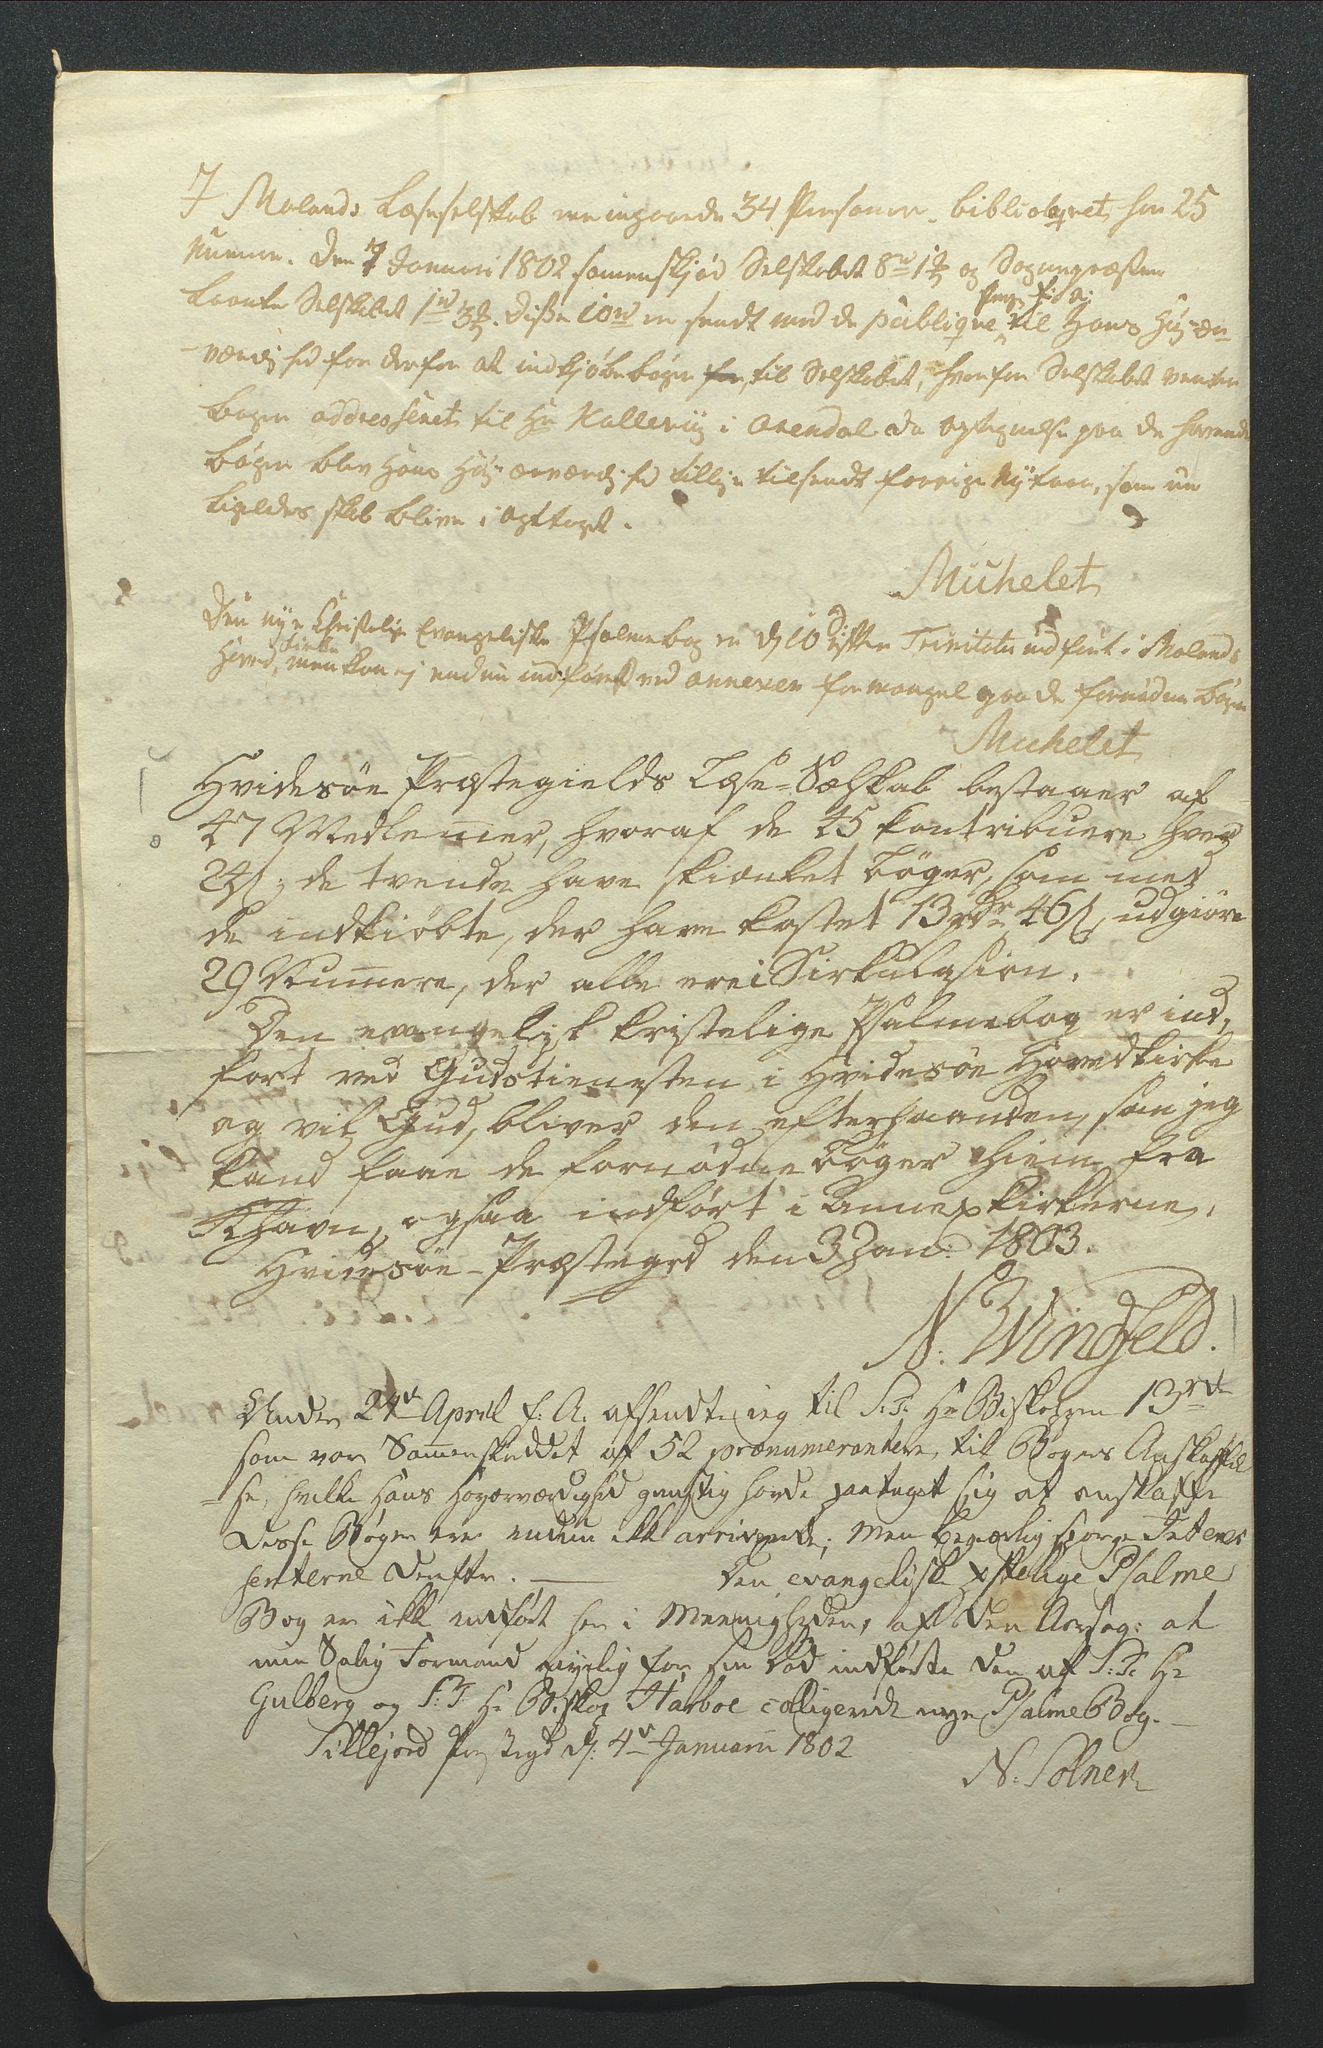 I Molands Læseselskab ere ingaaede 34 Personer. bibliotequet har 25
Numere. Den 7 Januari 1802 samenskjød Selskabet 8 rd 1 og Sognepræsten
laante Selskabet 1 rd 3. Disse 10 rd er sendt med de publique Penge f: A: til Hans Høj-ær-
værdighed for derfor at indkjøbe bøger for til Selskabet, hvorfor Selskabet venter
bøger addresseret til Hr Kallevig i Arendal da Optegnelse paa de havende
bøger blev Hans Højærværdighed tillige tilsendt forrige Nytaar, som nu
ligeledes skal blive i agttaget.
Michelet
Den nye Christelige Evangeliske Psalmebog er d 10de efter Trinitatis indført i Molands
Hovedkirke, men kan ej endnu indføres ved annexer for mangel paa de fornødne bøger
Michelet
Hvidesøe Præstegields Læse-Selskab bestaaer af
47 Medlemer, hvoraf de 45 kontribuere hver
24 s; de tvende have skienket Bøger, som med
de indkiøbte, der have kostet 13 rdr 46 s, udgiøre
29 Numere, der alle ere i Sirkulasion.
Den evangelisk kristelige Psalmebog er ind-
ført ved Gudstienesten i Hvidesøe Hovedkirke
og vil Gud, bliver den efterhaanden, som jeg
kand faae de fornødne Bøger hiem fra
Khavn, ogsaa indført i Annexkirkerne.
Hvidesøe-Præstegrd den 3 Jan: 1803.
N: Windfeld.
Under 24de April f: A. afsendte ieg til S:T: Hr Biskopen 13 rd
som var Sammenskuddet af 52 prænumerantere, til Bogers Anskaffel
-se, hvilke Hans Høyærværdighed gunstig hafde paataget sig at anskaffe
Disse Bøger ere endnu ikke arriverede; Men begierlig spørge Interes
senterne derefter. — Den evangeliske Xstelige Psalme
Bog er ikke indført her i Meenigheden, af den Aarsag: at
min Salig Formand nyelig før sin Død indførte den af S:T: Hr
Gulberg og S:T: Hr Biskop Harboe colligerede nye Psalme Bog. —
Sillejord Præstegd d: 4de Januarii 1802
N: Solner